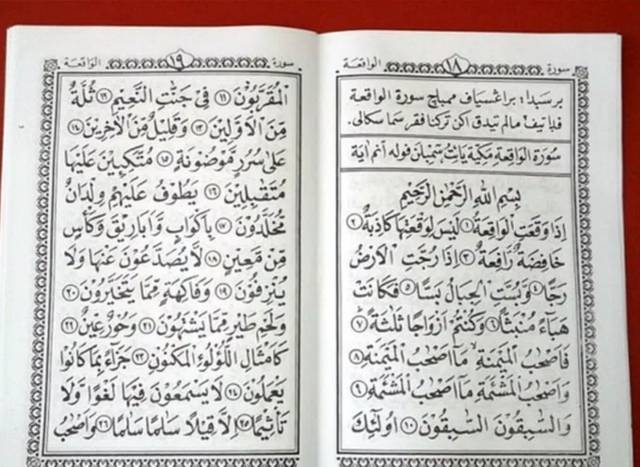 سورة ١٨ الواقعة
برسبدا٬ براڠسياف ممباچ سورة الواقعة
فد٢تيف٢ مالم تيدق اكن تركنا فقر سما سكالى.
سُوْرَةُ الْوَاقِعَةِ مَكِّيَّة
بِسْمِ اللهِ الرَّحْمٰنِ الرَّحِيْمِ
اِذَا وَقَعَتِ الْوَاقِعَةُ ١ لَيْسَ لِوَقْعَتِهَا كَاذِبَةٌ ٢
خَافِضَةٌ رَّافِعَةٌ ٣ اِذَا رُجَّتِ الْاَرْضُ
رَجًّا ٤ وَّبُسَّتِ الْجِبَالُ بَسًّا ٥ فَكَانَتْ
هَبَآءً مُّنْبَثًّا ٦ وَّكُنْتُمْ اَزْوَاجًا ثَلٰثَةً ٧
فَاَصْحٰبُ الْمَيْمَنَةِ مَآ اَصْحٰبُ الْمَيْمَنَةِ ٨
وَاَصْحٰبُ الْمَشْئَمَةِ مَآ اَصْحٰبُ الْمَشْئَمَةِ ٩
وَالسّٰبِقُوْنَ السّٰبِقُوْنَ ١٠ اُولٰٓئِكَ
سورة ١٩ الواقعة
الْمُقَرَّبُوْنَ ١١ فِيْ جَنّٰتِ النَّعِيْمِ ١٢ ثُلَّةٌ
مِّنَ الْاَوَّلِيْنَ ١٣ وَقَلِيْلٌ مِّنَ الْاٰخِرِيْنَ ١٤
عَلٰى سُرُرٍ مَّوْضُوْنَةٍ ١٥ مُّتَّكِئِيْنَ عَلَيْهَا
مُتَقٰبِلِيْنَ ١٦ يَطُوْفُ عَلَيْهِمْ وِلْدَانٌ
مُّخَلَّدُوْنَ ١٧ بِاَكْوَابٍ وَّاَبَارِيْقَ وَكَأْسٍ
مِّنْ مَّعِيْنٍ ١٨ لَّا يُصَدَّعُوْنَ عَنْهَا وَلَا
يُنْزِفُوْنَ ١٩ وَفَاكِهَةٍ مِّمَّا يَتَخَيَّرُوْنَ ٢٠
وَلَحْمِ طَيْرٍ مِّمَّا يَشْتَهُوْنَ ٢١ وَحُوْرٌ عِيْنٌ ٢٢
كَاَمْثَالِ اللُّؤْلُؤِ الْمَكْنُوْنِ ٢٣ جَزَآءً بِمَا كَانُوْا
يَعْمَلُوْنَ ٢٤ لَا يَسْمَعُوْنَ فِيْهَا لَغْوًا وَّلَا
تَأْثِيْمًا ٢٥ اِلَّا قِيْلًا سَلٰمًا سَلٰمًا ٢٦ وَاَصْحٰبُ